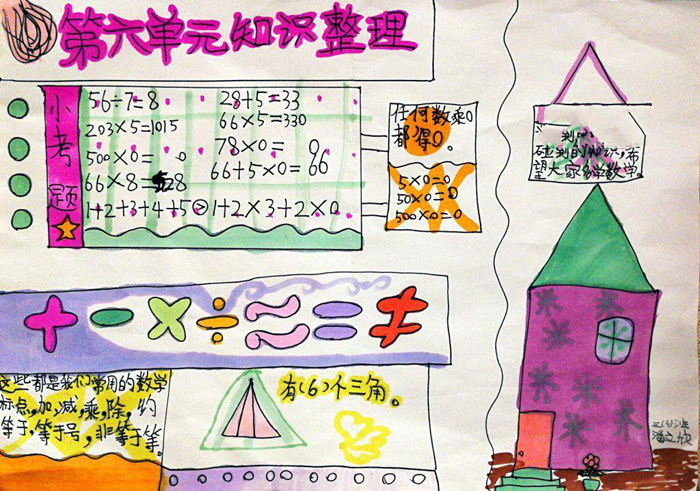 第六单元知识整理
小考题
56÷7=8
28+5=33
203×5=1015
66×5=330
500×0= 0
78×0=
66×8=528
66+5×0=66
1+2+3+4+5>1+2×3+2×0
任何数乘0
都得0。
5×0=0
50×0=0
500×0=0
+ - × ÷ ≈ = ≠
这些都是我们常用的数学
标点,加,减,乘,除,约
等于,等于号,非等于等。
有(6)个三角。
的知识,希
望大家多学数学。